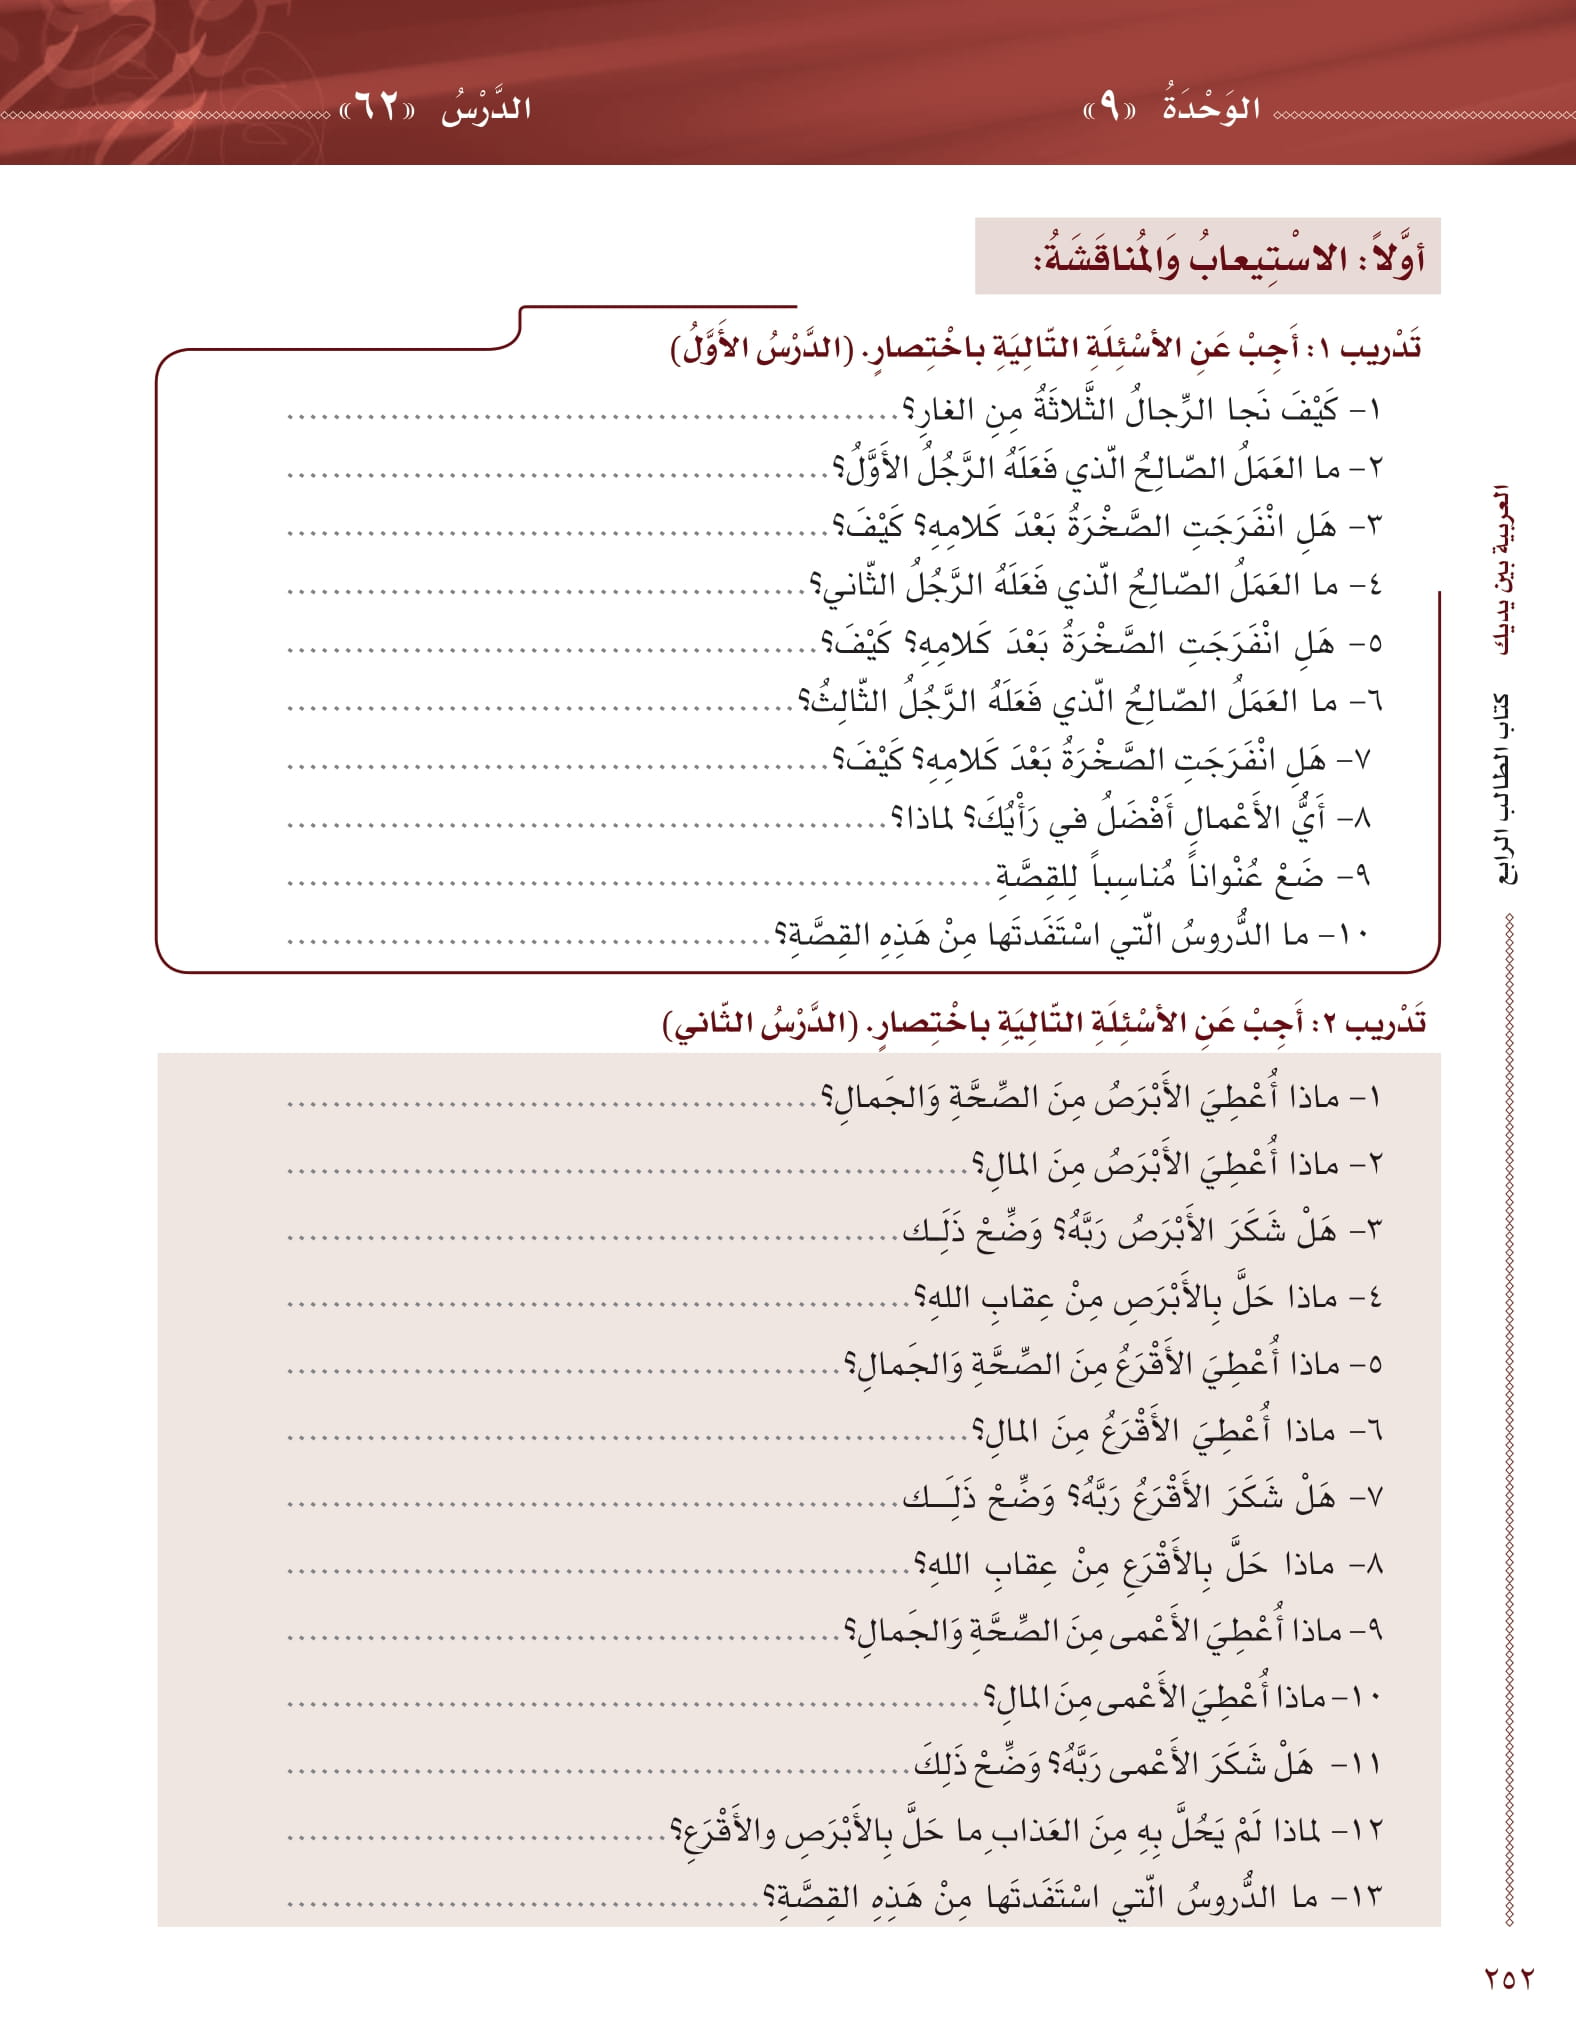 الوَحْدَةُ «٩»
الدَّرْسُ «٦٢»
أوَّلاً: الاسْتِيعابُ وَالمُناقَشَةُ:
تَدْريب ١: أَجِبْ عَنِ الأسْئِلَةِ التّالِيَةِ باخْتِصارٍ. (الدَّرْسُ الأَوَّلُ)
١- كَيْفَ نَجا الرِّجالُ الثَّلاثَةُ مِنِ الغارِ؟
٢- ما العَمَلُ الصّالِحُ الّذي فَعَلَهُ الرَّجُلُ الأَوَّلُ؟
٣- هَلِ انْفَرَجَتِ الصَّخْرَةُ بَعْدَ كَلامِهِ؟ كَيْفَ؟
٤- ما العَمَلُ الصّالِحُ الّذي فَعَلَهُ الرَّجُلُ الثّاني؟
٥- هَلِ انْفَرَجَتِ الصَّخْرَةُ بَعْدَ كَلامِهِ؟ كَيْفَ؟
٦- ما العَمَلُ الصّالِحُ الّذي فَعَلَهُ الرَّجُلُ الثّالِثُ؟
٧- هَلِ انْفَرَجَتِ الصَّخْرَةُ بَعْدَ كَلامِهِ؟ كَيْفَ؟
٨- أَيُّ الأَعْمالِ أَفْضَلُ في رَأْيُكَ؟ لماذا؟
٩- ضَعْ عُنْواناً مُناسِباً لِلقِصَّةِ
١٠- ما الدُّروسُ الّتي اسْتَفَدتَها مِنْ هَذِهِ القِصَّةِ؟
تَدْريب ٢: أَجِبْ عَنِ الأسْئِلَةِ التّالِيَةِ باخْتِصارٍ. (الدَّرْسُ الثّاني)
١- ماذا أُعْطِيَ الأَبْرَصُ مِنَ الصِّحَّةِ وَالجَمالِ؟
٢- ماذا أُعْطِيَ الأَبْرَصُ مِنَ المالِ؟
٣- هَلْ شَكَرَ الأَبْرَصُ رَبَّهُ؟ وَضِّحْ ذَلَِـك
٤- ماذا حَلَّ بِالأَبْرَصِ مِنْ عِقابِ اللهِ؟
٥- ماذا أُعْطِيَ الأَقْرَعُ مِنَ الصِّحَّةِ وَالجَمالِ؟
٦- ماذا أُعْطِيَ الأَقْرَعُ مِنَ المالِ؟
٧- هَلْ شَكَرَ الأَقْرَعُ رَبَّهُ؟ وَضِّحْ ذَلَِــك
٨- ماذا حَلَّ بِالأَقْرَعِ مِنْ عِقابِ اللهِ؟
٩- ماذا أُعْطِيَ الأَعْمى مِنَ الصِّحَّةِ وَالجَمالِ؟
١٠- ماذا أُعْطِيَ الأَعْمى مِنَ المالِ؟
١١- هَلْ شَكَرَ الأَعْمى رَبَّهُ؟ وَضِّحْ ذَلِكَ
١٢- لماذا لَمْ يَحُلَّ بِهِ مِنَ العَذابِ ما حَلَّ بِالأَبْرَصِ والأَقْرَعِ؟
١٣- ما الدُّروسُ الّتي اسْتَفَدتَها مِنْ هَذِهِ القِصَّةِ؟
العربية بين يديك كتاب الطالب الرابع
٢٥٢